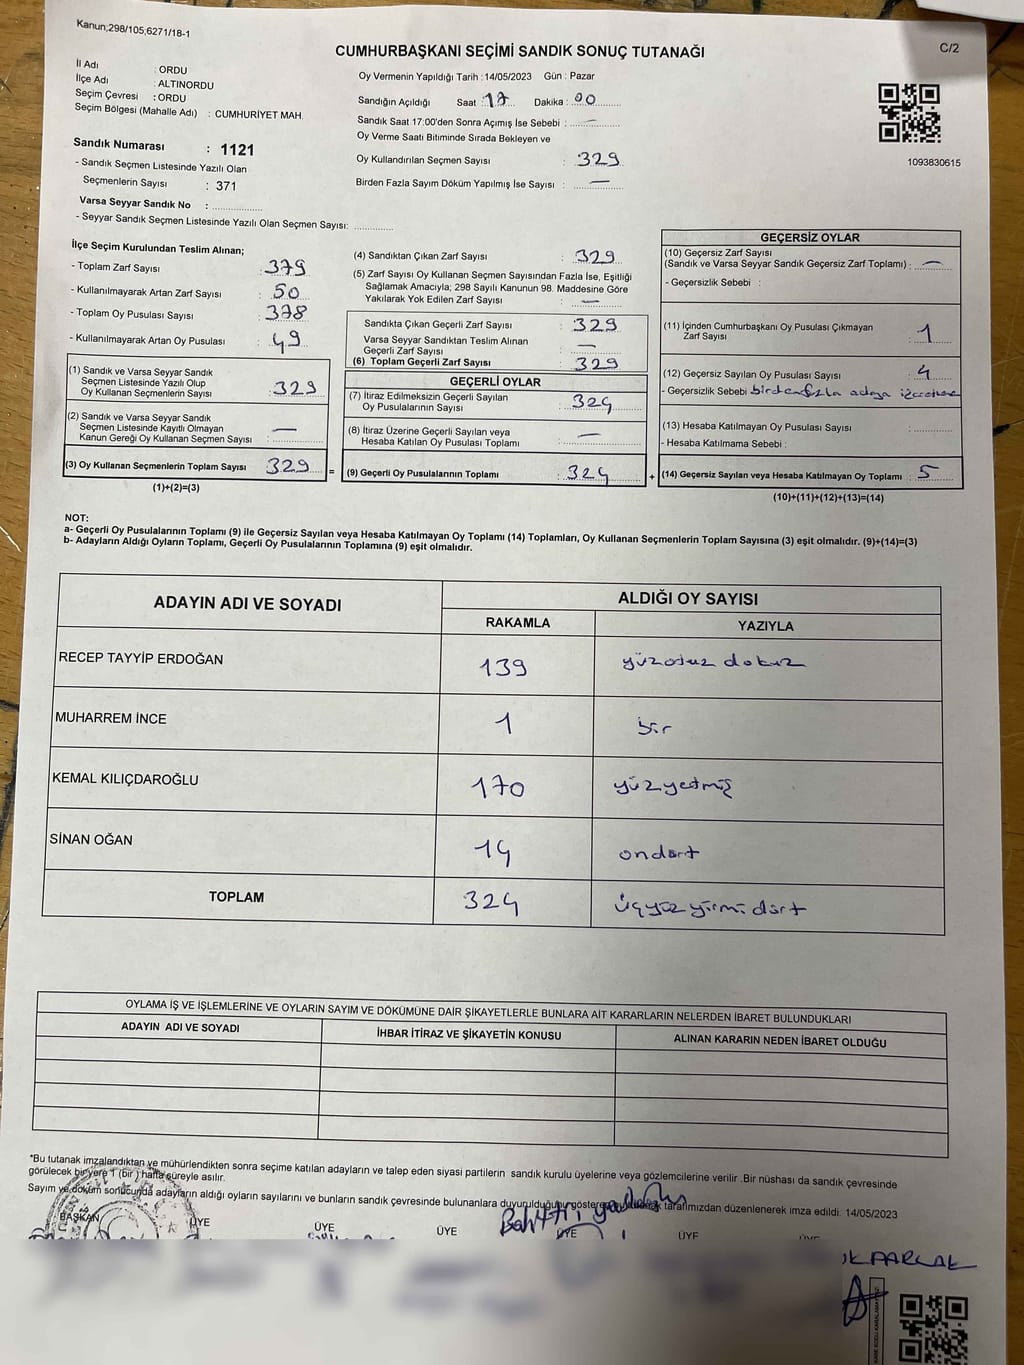 Kanun;298/105;6271/18-1
C/2
CUMHURBAŞKANI SEÇİMİ SANDIK SONUÇ TUTANAĞI
İl Adı : ORDU
İlçe Adı : ALTINORDU
Seçim Çevresi : ORDU
Seçim Bölgesi (Mahalle Adı) : CUMHURİYET MAH.
Sandık Numarası : 1121
- Sandık Seçmen Listesinde Yazılı Olan
Seçmenlerin Sayısı : 371
Varsa Seyyar Sandık No : ..............
- Seyyar Sandık Seçmen Listesinde Yazılı Olan Seçmen Sayısı: ..............
Oy Vermenin Yapıldığı Tarih : 14/05/2023 Gün : Pazar
Sandığın Açıldığı Saat : 17 Dakika : 00
Sandık Saat 17:00'den Sonra Açımış İse Sebebi : —
Oy Verme Saati Bitiminde Sırada Bekleyen ve
Oy Kullandırılan Seçmen Sayısı : 329
Birden Fazla Sayım Döküm Yapılmış İse Sayısı : —
1093830615
İlçe Seçim Kurulundan Teslim Alınan;
- Toplam Zarf Sayısı : 379
- Kullanılmayarak Artan Zarf Sayısı : 50
- Toplam Oy Pusulası Sayısı : 378
- Kullanılmayarak Artan Oy Pusulası : 49
(1) Sandık ve Varsa Seyyar Sandık
Seçmen Listesinde Yazılı Olup
Oy Kullanan Seçmenlerin Sayısı : 329
(2) Sandık ve Varsa Seyyar Sandık
Seçmen Listesinde Kayıtlı Olmayan
Kanun Gereği Oy Kullanan Seçmen Sayısı : —
(3) Oy Kullanan Seçmenlerin Toplam Sayısı : 329
(1)+(2)=(3)
(4) Sandıktan Çıkan Zarf Sayısı : 329
(5) Zarf Sayısı Oy Kullanan Seçmen Sayısından Fazla İse, Eşitliği
Sağlamak Amacıyla; 298 Sayılı Kanunun 98. Maddesine Göre
Yakılarak Yok Edilen Zarf Sayısı : —
Sandıkta Çıkan Geçerli Zarf Sayısı : 329
Varsa Seyyar Sandıktan Teslim Alınan
Geçerli Zarf Sayısı : —
(6) Toplam Geçerli Zarf Sayısı : 329
GEÇERLİ OYLAR
(7) İtiraz Edilmeksizin Geçerli Sayılan
Oy Pusulalarının Sayısı : 324
(8) İtiraz Üzerine Geçerli Sayılan veya
Hesaba Katılan Oy Pusulası Toplamı : —
= (9) Geçerli Oy Pusulalarının Toplamı : 324
GEÇERSİZ OYLAR
(10) Geçersiz Zarf Sayısı
(Sandık ve Varsa Seyyar Sandık Geçersiz Zarf Toplamı) : —
- Geçersizlik Sebebi :
(11) İçinden Cumhurbaşkanı Oy Pusulası Çıkmayan
Zarf Sayısı : 1
(12) Geçersiz Sayılan Oy Pusulası Sayısı : 4
- Geçersizlik Sebebi birdenfazla adaya
(13) Hesaba Katılmayan Oy Pusulası Sayısı : ..............
- Hesaba Katılmama Sebebi :
+ (14) Geçersiz Sayılan veya Hesaba Katılmayan Oy Toplamı : 5
(10)+(11)+(12)+(13)=(14)
NOT:
a- Geçerli Oy Pusulalarının Toplamı (9) ile Geçersiz Sayılan veya Hesaba Katılmayan Oy Toplamı (14) Toplamları, Oy Kullanan Seçmenlerin Toplam Sayısına (3) eşit olmalıdır. (9)+(14)=(3)
b- Adayların Aldığı Oyların Toplamı, Geçerli Oy Pusulalarının Toplamına (9) eşit olmalıdır.
ADAYIN ADI VE SOYADI ALDIĞI OY SAYISI
RAKAMLA YAZIYLA
RECEP TAYYİP ERDOĞAN 139 yüzotuz dokuz
MUHARREM İNCE 1 bir
KEMAL KILIÇDAROĞLU 170 yüzyetmiş
SİNAN OĞAN 14 ondört
TOPLAM 324 üçyüzyirmi dört
OYLAMA İŞ VE İŞLEMLERİNE VE OYLARIN SAYIM VE DÖKÜMÜNE DAİR ŞİKAYETLERLE BUNLARA AİT KARARLARIN NELERDEN İBARET BULUNDUKLARI
ADAYIN ADI VE SOYADI İHBAR İTİRAZ VE ŞİKAYETİN KONUSU ALINAN KARARIN NEDEN İBARET OLDUĞU
*Bu tutanak imzalandıktan ve mühürlendikten sonra seçime katılan adayların ve talep eden siyasi partilerin sandık kurulu üyelerine veya gözlemcilerine verilir .Bir nüshası da sandık çevresinde
görülecek bir yere 1 (bir ) hafta süreyle asılır.
Sayım ve döküm sonucunda adayların aldığı oyların sayılarını ve bunların sandık çevresinde bulunanlara duyurulduğunu tarafımızdan düzenlenerek imza edildi. 14/05/2023
BAŞKAN ÜYE ÜYE ÜYE ÜYE ÜYE
PARLAK